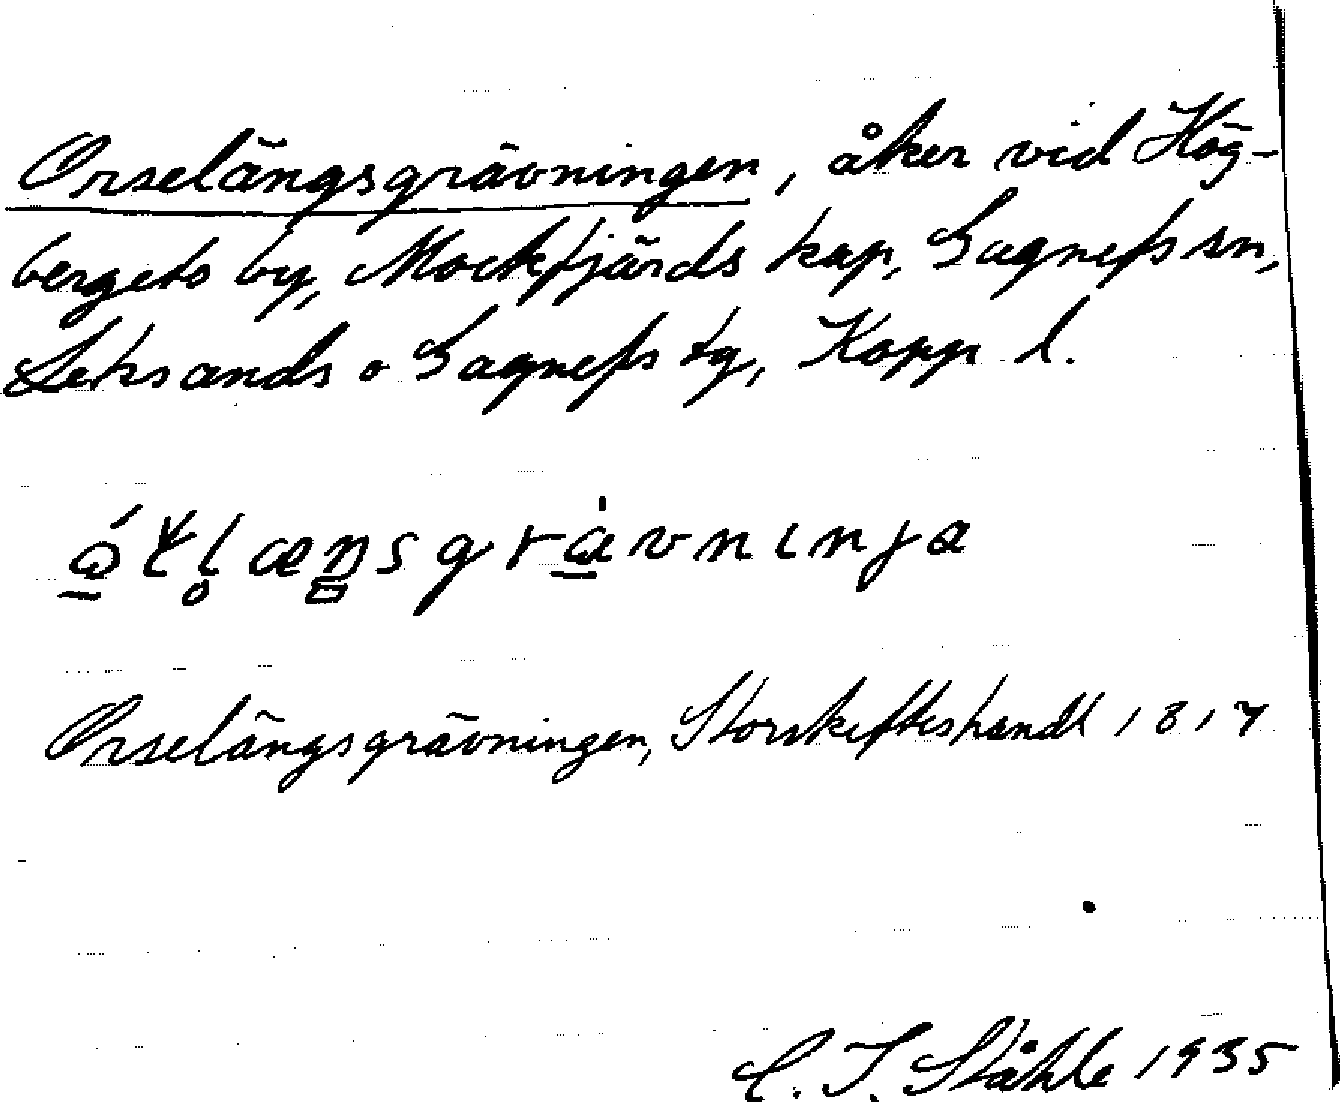 Orselängsgrävningen, åker vid Hög-
bergets by, Mockfjärds kap, Gagnefs sn,
Leksands o Gagnefs tg, Kopp l.
Orselängsgrävningen, Storskifteshandl 1817
C. I. Ståhle 1935